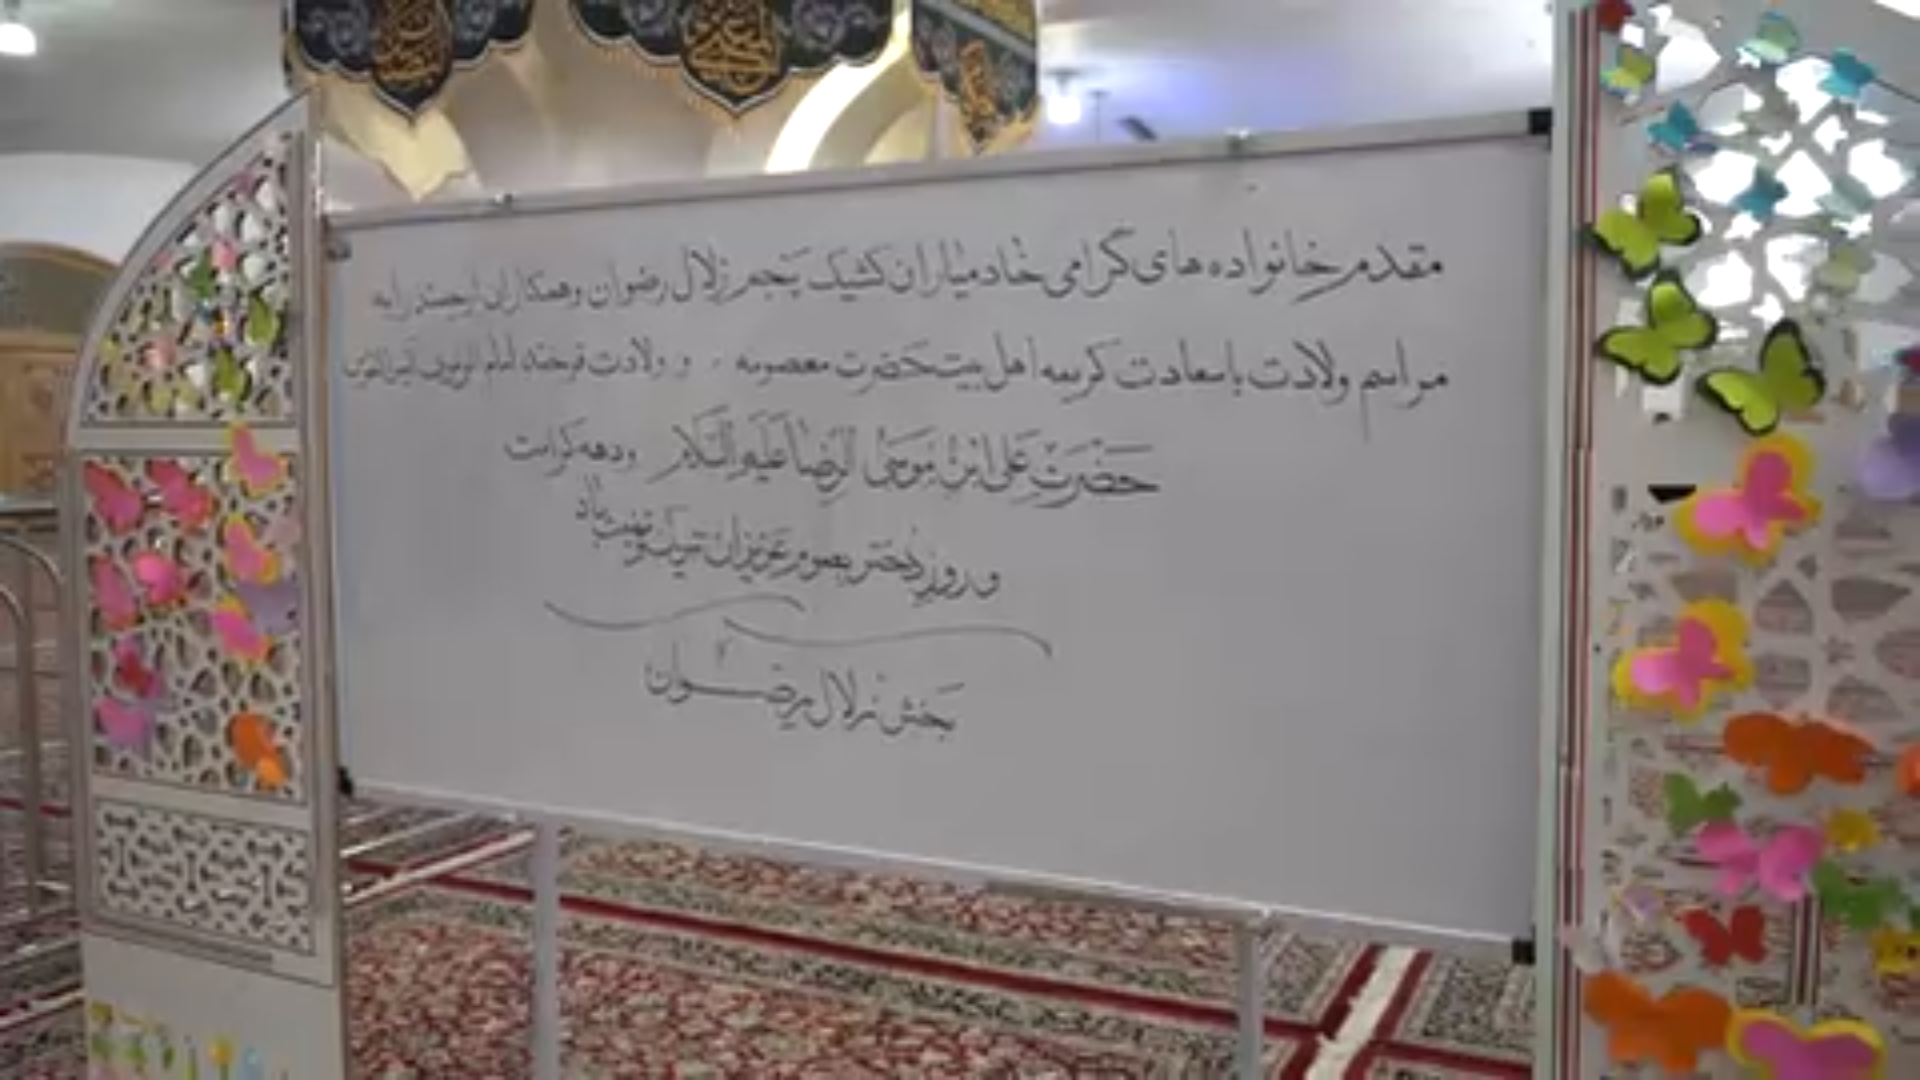 مقدم خانواده های گرامی خادمیاران کشیک پنجم زلال رضوان و همکاران ارجمند را به
مراسم ولادت باسعادت کریمه اهل بیت حضرت معصومه و ولادت فرخنده امام
حَضرَتِ عَلی ابنِ مُوسَی الرِضا عَلَیهِ السَّلام و دهه کرامت
و روز دختر بصوم عزیزان تبریک و تهنیت باد
بخش زلال رضوان